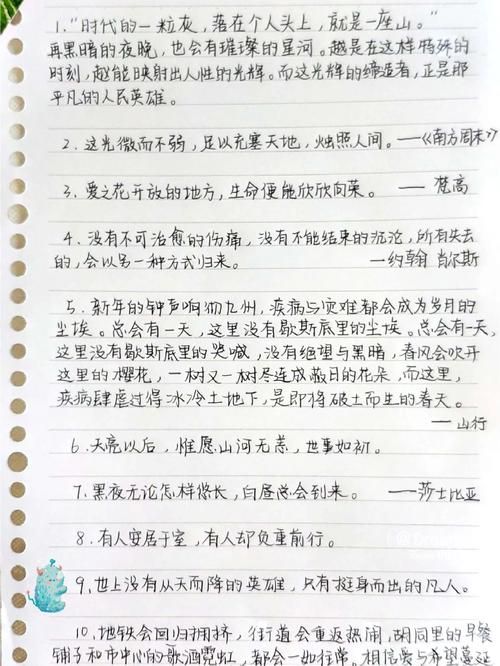 1."时代的一粒灰，落在个人头上，就是一座山。"
再黑暗的夜晚，也会有璀璨的星河。越是在这样特殊的
时刻，越能映射出人性的光辉。而这光辉的缔造者，正是那
平凡的人民英雄。
2.这光微而不弱，足以充塞天地，烛照人间。——《南方周末》
3.爱之花开放的地方，生命便能欣欣向荣。——梵高
4.没有不可治愈的伤痛，没有不能结束的沉沦，所有失去
的，会以另一种方式归来。——约翰 肖尔斯
5.新年的钟声响彻九州，疾病与灾难都会成为岁月的
尘埃。总会有一天，这里没有歇斯底里的尘埃。总会有一天，
这里没有歇斯底里的哭喊，没有绝望与黑暗，春风会吹开
这里的樱花，一树又一树尽连成蔽日的花朵，而这里，
疾病肆虐过得冰冷土地下，是即将破土而生的春天。
——山行
6.天亮以后，惟愿山河无恙，世事如初。
7.黑夜无论怎样悠长，白昼总会到来。——莎士比亚
8.有人安居于室，有人却负重前行。
9.世上没有从天而降的英雄，只有挺身而出的凡人。
10.地铁会回归拥挤，街道会重返热闹，胡同里的早餐
铺子和市中心的歌酒霓虹，都会一如往常。相信爱与希望蔓延